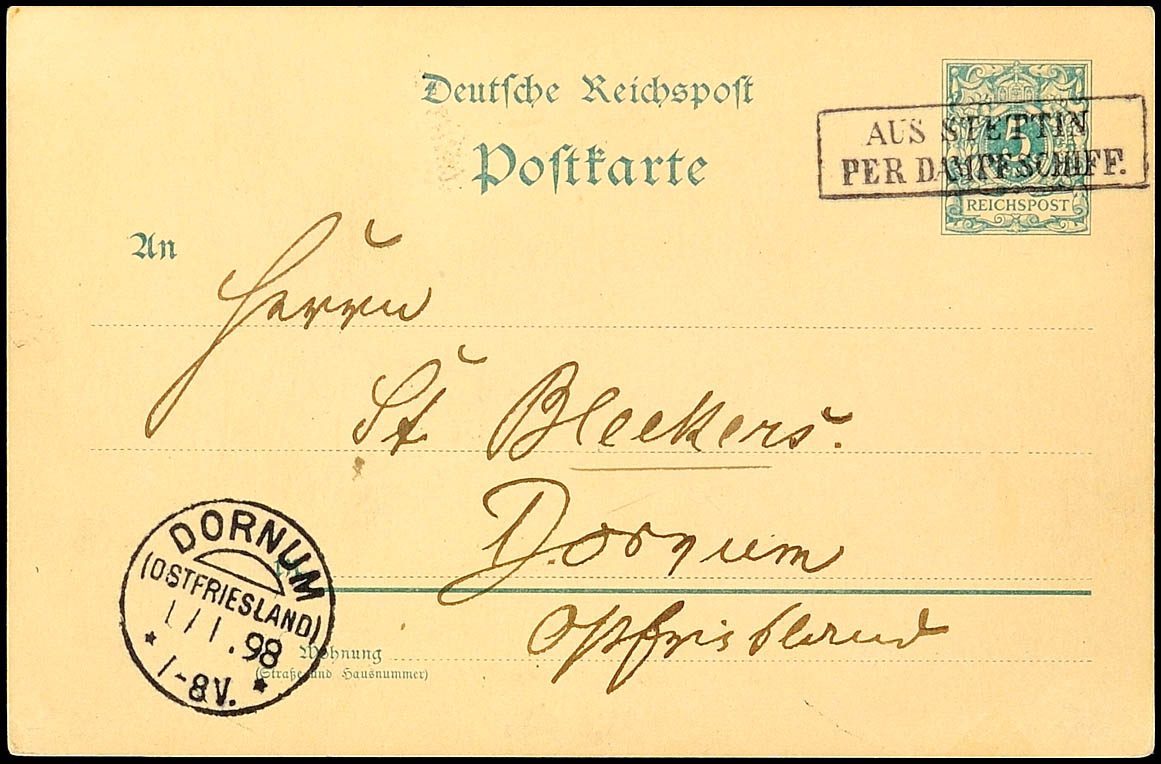 Deutsche Reichspost
Postkarte
5
REICHSPOST
AUS STETTIN
PER DAMPFSCHIFF.
An
Herrn
St Bleekers.
Dornum
Ostfriesland
DORNUM
(OSTFRIESLAND)
1/1.98
* 1-8V. *
Wohnung
(Straße und Hausnummer)